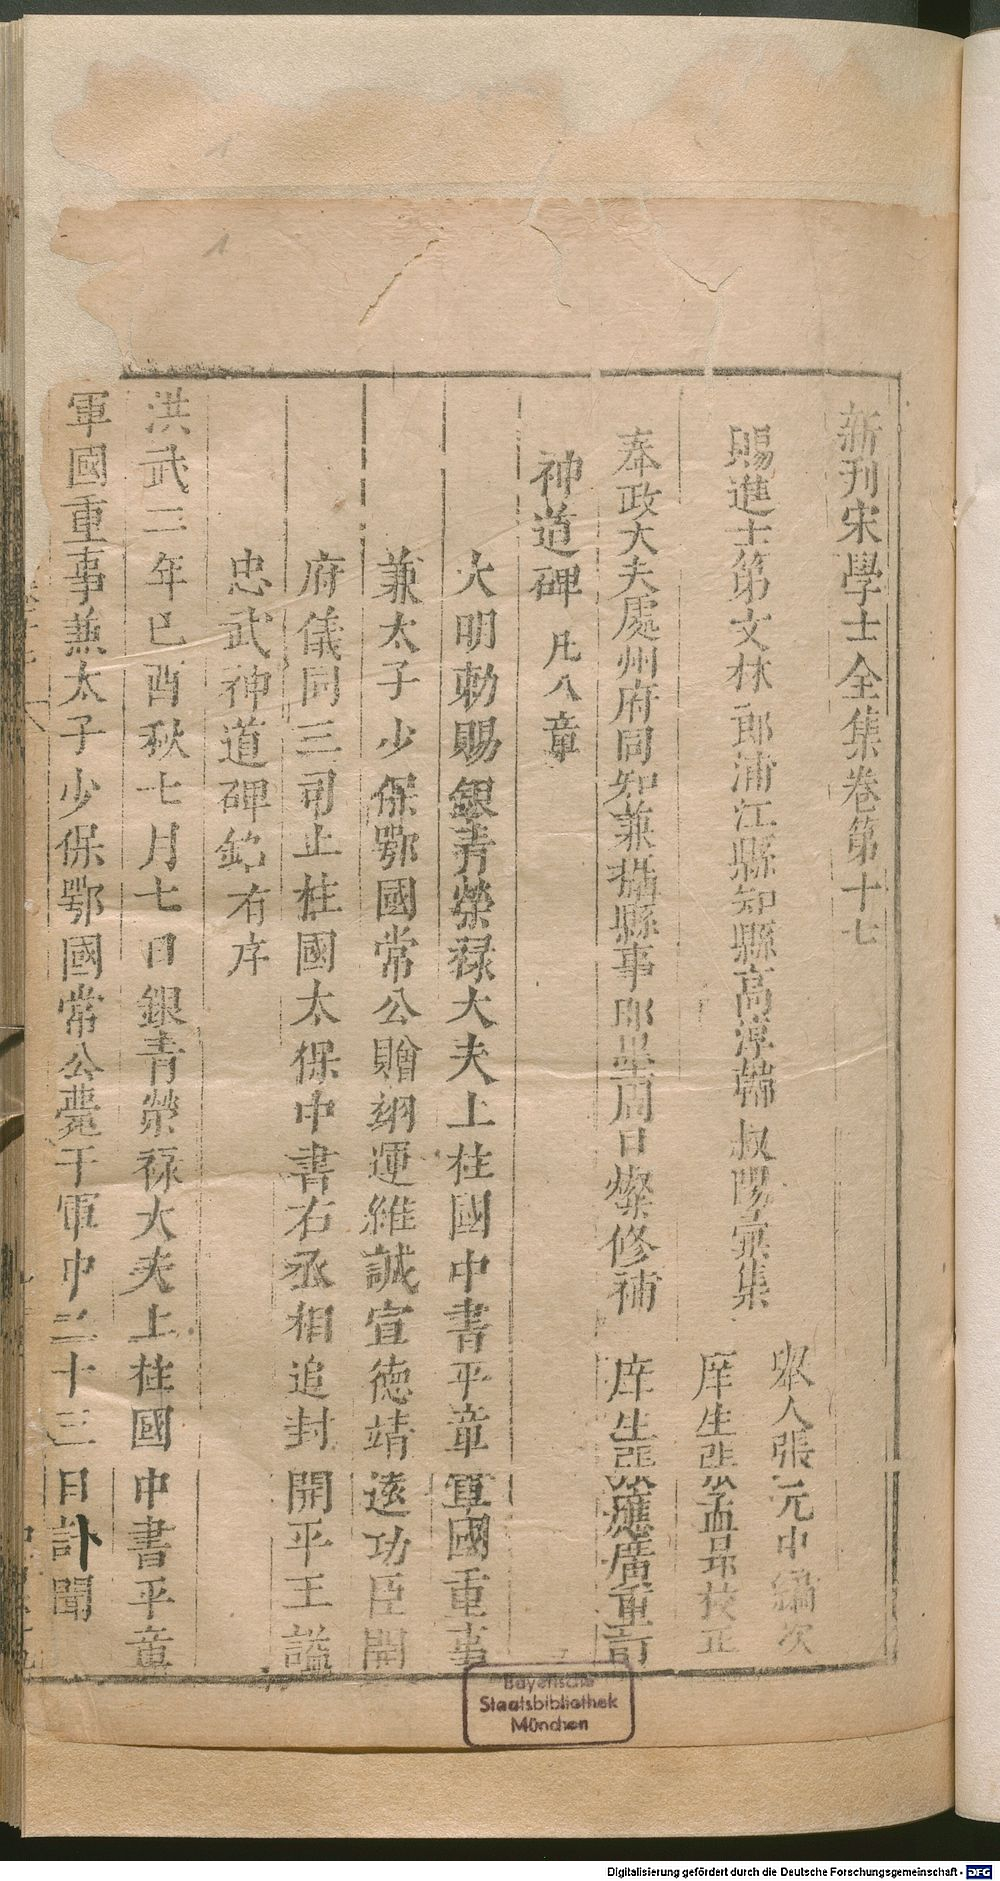 新刊宋學士全集卷第十七
賜進士第文林郎浦江縣知縣高淳韓叔陽彙集
舉人張元中編次
庠生張孟昂挍正
奉政大夫處州府同知兼攝縣事即墨周日燦修補
庠生張應廣重訂
神道碑 凡八章
大明勅賜銀青榮禄大夫上柱國中書平章軍國重事
兼太子少保鄂國常公贈翊運維誠宣德靖遠功臣開
府儀同三司上柱國太保中書右丞相追封開平王謚
忠武神道碑銘有序
洪武二年巳酉秋七月七日銀青榮禄大夫上柱國中書平章
軍國重事兼太子少保鄂國常公薨于軍中二十三日訃聞
Bayerische
Staatsbibliothek
München
Digitalisierung gefördert durch die Deutsche Forschungsgemeinschaft - DFG